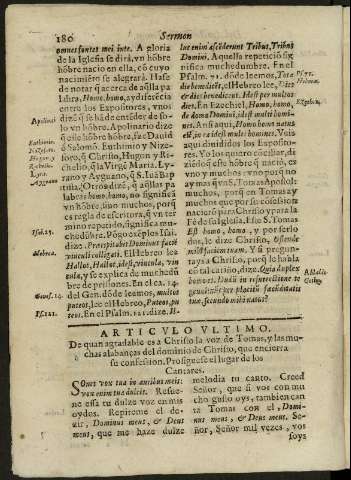 180
Sermon
omnes fontes mei inte. A gloria
de la Iglesia se dirà, vn hōbre
hōbre nacio en ella, cō cuyo
nacimiēto se alegrarà. Hase
de notar q̃ acerca de aq̃lla pa
labra, Homo, homo, ay discordia
entre los Expositores, vnos
dizē q̃ se hà de entēder de so-
lo vn hōbre. Apolinario dize
q̃ este hōbre hōbre, fue Dauid
ò Salomō. Euthimio y Nize-
foro, q̃ Christo, Hugon y Ri-
chelio, q̃ la Virgē Maria. Ly-
rano y Ayguano, q̃ S. Iuā Bap-
tista. Otros dizē, q̃ aq̃llas pa
labras homo homo, no significā
vn hōbre, sino muchos, porq̃
es regla de escritura, q̃ vn ter
mino repetido, significa mu-
chedūbre. Pōgo exēplos Isai.
dize. Praecipitabit Dominus faciē
vinculi colligati. El Hebreo lee
Hallot, Hallot, idest, vincula,
vincula, y se explica de muchedū
bre de prisiones. En el ca. 14.
del Gen. dōde leemos, multos
puteos, lee el Hebreo, Puteos, pu
teos. En el Psalm. 121. dize. Il-
Apolinar.
Euthimio.
Nizefor.
Hugon y
Richelio.
Lyra.
Ayguano
Isai. 25.
Hebrea.
Genes. 14.
Ps. 121.
luc enim ascēderunt Tribus, Tribus
Domini. Aquella repeticiō sig
nifica muchedumbre. En el
Psalm. 71. dōde leemos, Tota
die benedicēt, el Hebreo lee, Die
& die benedicent. Idest per multos
dies. En Ezechiel, Homo, homo,
de domo Domini, idest multi homi-
nes. Ansi aqui, Homo homo natus
est, in ea idest multi homines. Veis
aqui diuididos los Exposito-
res. Yo los quiero cōciliar, di-
ziēdo q̃ este hōbre q̃ nacio, es
vno y muchos: vno porq̃ no
ay mas q̃ vn S. Tomas Apostol:
muchos, porq̃ en Tomas ay
muchos que por su cōfession
nacierō para Christo y para la
Fè de su Iglesia, Hic S. Tomas
Est homo, homo, y por serlo to
dos, le dize Christo, Ostende
mihi faciem tuam. Y si pregun-
tays a Christo, porq̃ le habla
cō tal cariño, dize. Quia duplex
homo es.
tue, secundo mihi natus?
Ps. 71.
Hebrea.
Ezechiel.
ARTICVLO VLTIMO.
De quan agradable es a Christo la voz de Tomas, y las mu-
chas alabanças del dominio de Christo, que encierra
su confession. Prosiguese el lugar de los
Cantares.
Sonet vox tua in auribus meis:
vox enim tua dulcis. Resue-
ne essa tu dulce voz en mis
oydos. Repiteme el de-
zir, Dominus meus, & Deus
meus, que me haze dulce
melodia tu canto. Creed
Señor, que si vos con mu
cho gusto oys, tambien can
ta Tomas con el, Domi-
nus meus, & Deus meus. Se-
ñor, Señor mil vezes, vos
soys